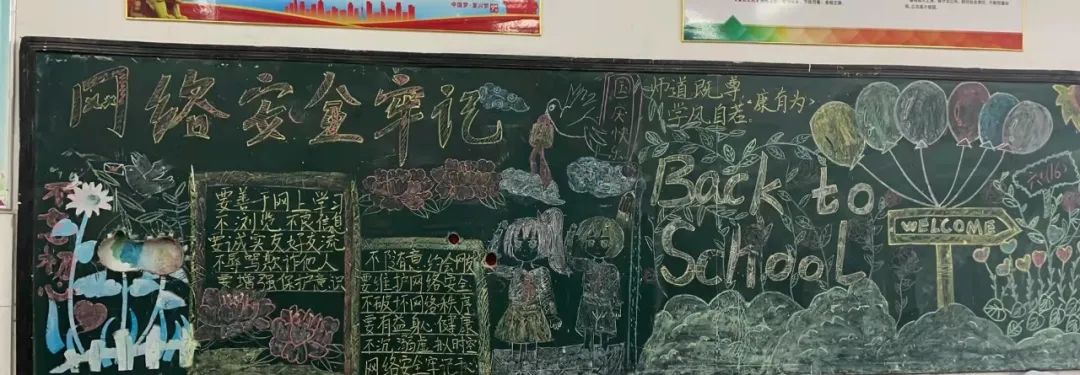 网络安全牢记
不忘初心
要善于网上学习
不浏览不良信息
要诚实友好交流
不辱骂欺诈他人
要增强保护意识
不随意约会网友
要维护网络安全
不破坏网络秩序
要有益身心健康
不沉溺虚拟时空
网络安全牢记于心
国庆快
师道既尊
学风自若。康有为
Back to
School
WELCOME
六(16)